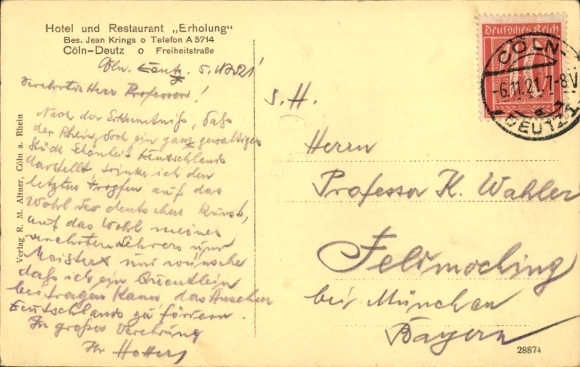 Hotel und Restaurant „Erholung"
Bes. Jean Krings o Telefon A 5714
Cöln-Deutz o Freiheitstraße
Cöln. Deutz 5.11.1921
Verehrter Herr Professor!
Nach der Erkenntnis, daß
der Rhein, doch ein ganz gewaltiges
Stück Schönheit Deutschlands
darstellt, trinke ich den
letzten Tropfen auf das
Wohl der deutschen Kunst,
auf das Wohl meines
verehrten Lehrers und
Meisters und wünsche
daß ich ein Quentlein
beitragen kann, das Ansehen
Deutschlands zu fördern.
In großer Verehrung
Ihr
Verlag R. M. Altner, Cöln a. Rhein
Deutsches Reich
CÖLN
-6.11.21.7-8V
DEUTZ 1
S. H.
Herrn
Professor K. Wahler
Feldmoching
bei München
Bayern
28874